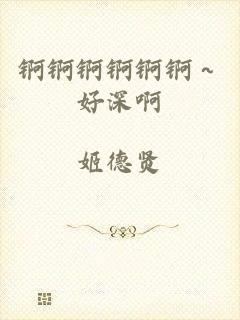 锕锕锕锕锕锕～
好深啊
姬德贤